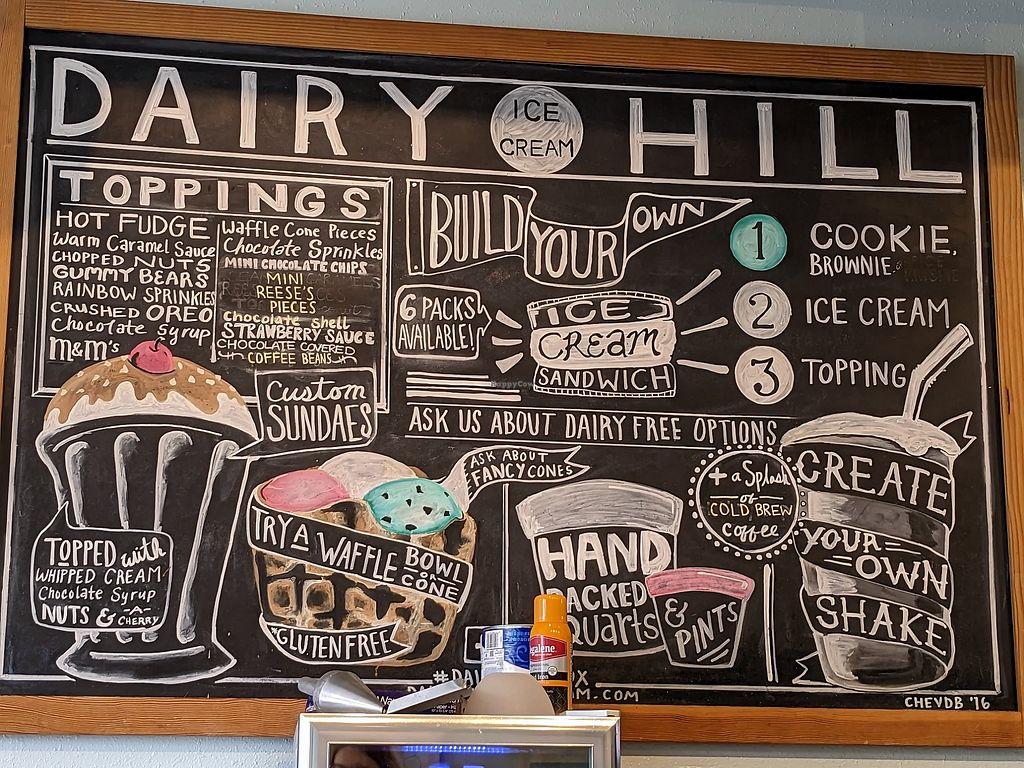 DAIRY ICE CREAM HILL
TOPPINGS
HOT FUDGE
Warm Caramel Sauce
CHOPPED NUTS
GUMMY BEARS
RAINBOW SPRINKLES
CRUSHED OREO
Chocolate Syrup
M&M's
Waffle Cone Pieces
Chocolate Sprinkles
MINI CHOCOLATE CHIPS
MINI
REESE'S
PIECES
chocolate shell
STRAWBERRY SAUCE
CHOCOLATE COVERED
COFFEE BEANS
BUILD YOUR OWN
6 PACKS
AVAILABLE!
ICE
CREAM
SANDWICH
1 COOKIE,
BROWNIE
2 ICE CREAM
3 TOPPING
ASK US ABOUT DAIRY FREE OPTIONS
Custom
SUNDAES
TOPPED with
WHIPPED CREAM
Chocolate Syrup
NUTS & -A-
CHERRY
ASK ABOUT
FANCY CONES
TRY A WAFFLE BOWL
OR
CONE
*GLUTEN FREE
HAND
PACKED
Quarts
& PINTS
+ a Splash
of
COLD BREW
coffee
CREATE
YOUR
OWN
SHAKE
CHEVDB '16
HappyCow